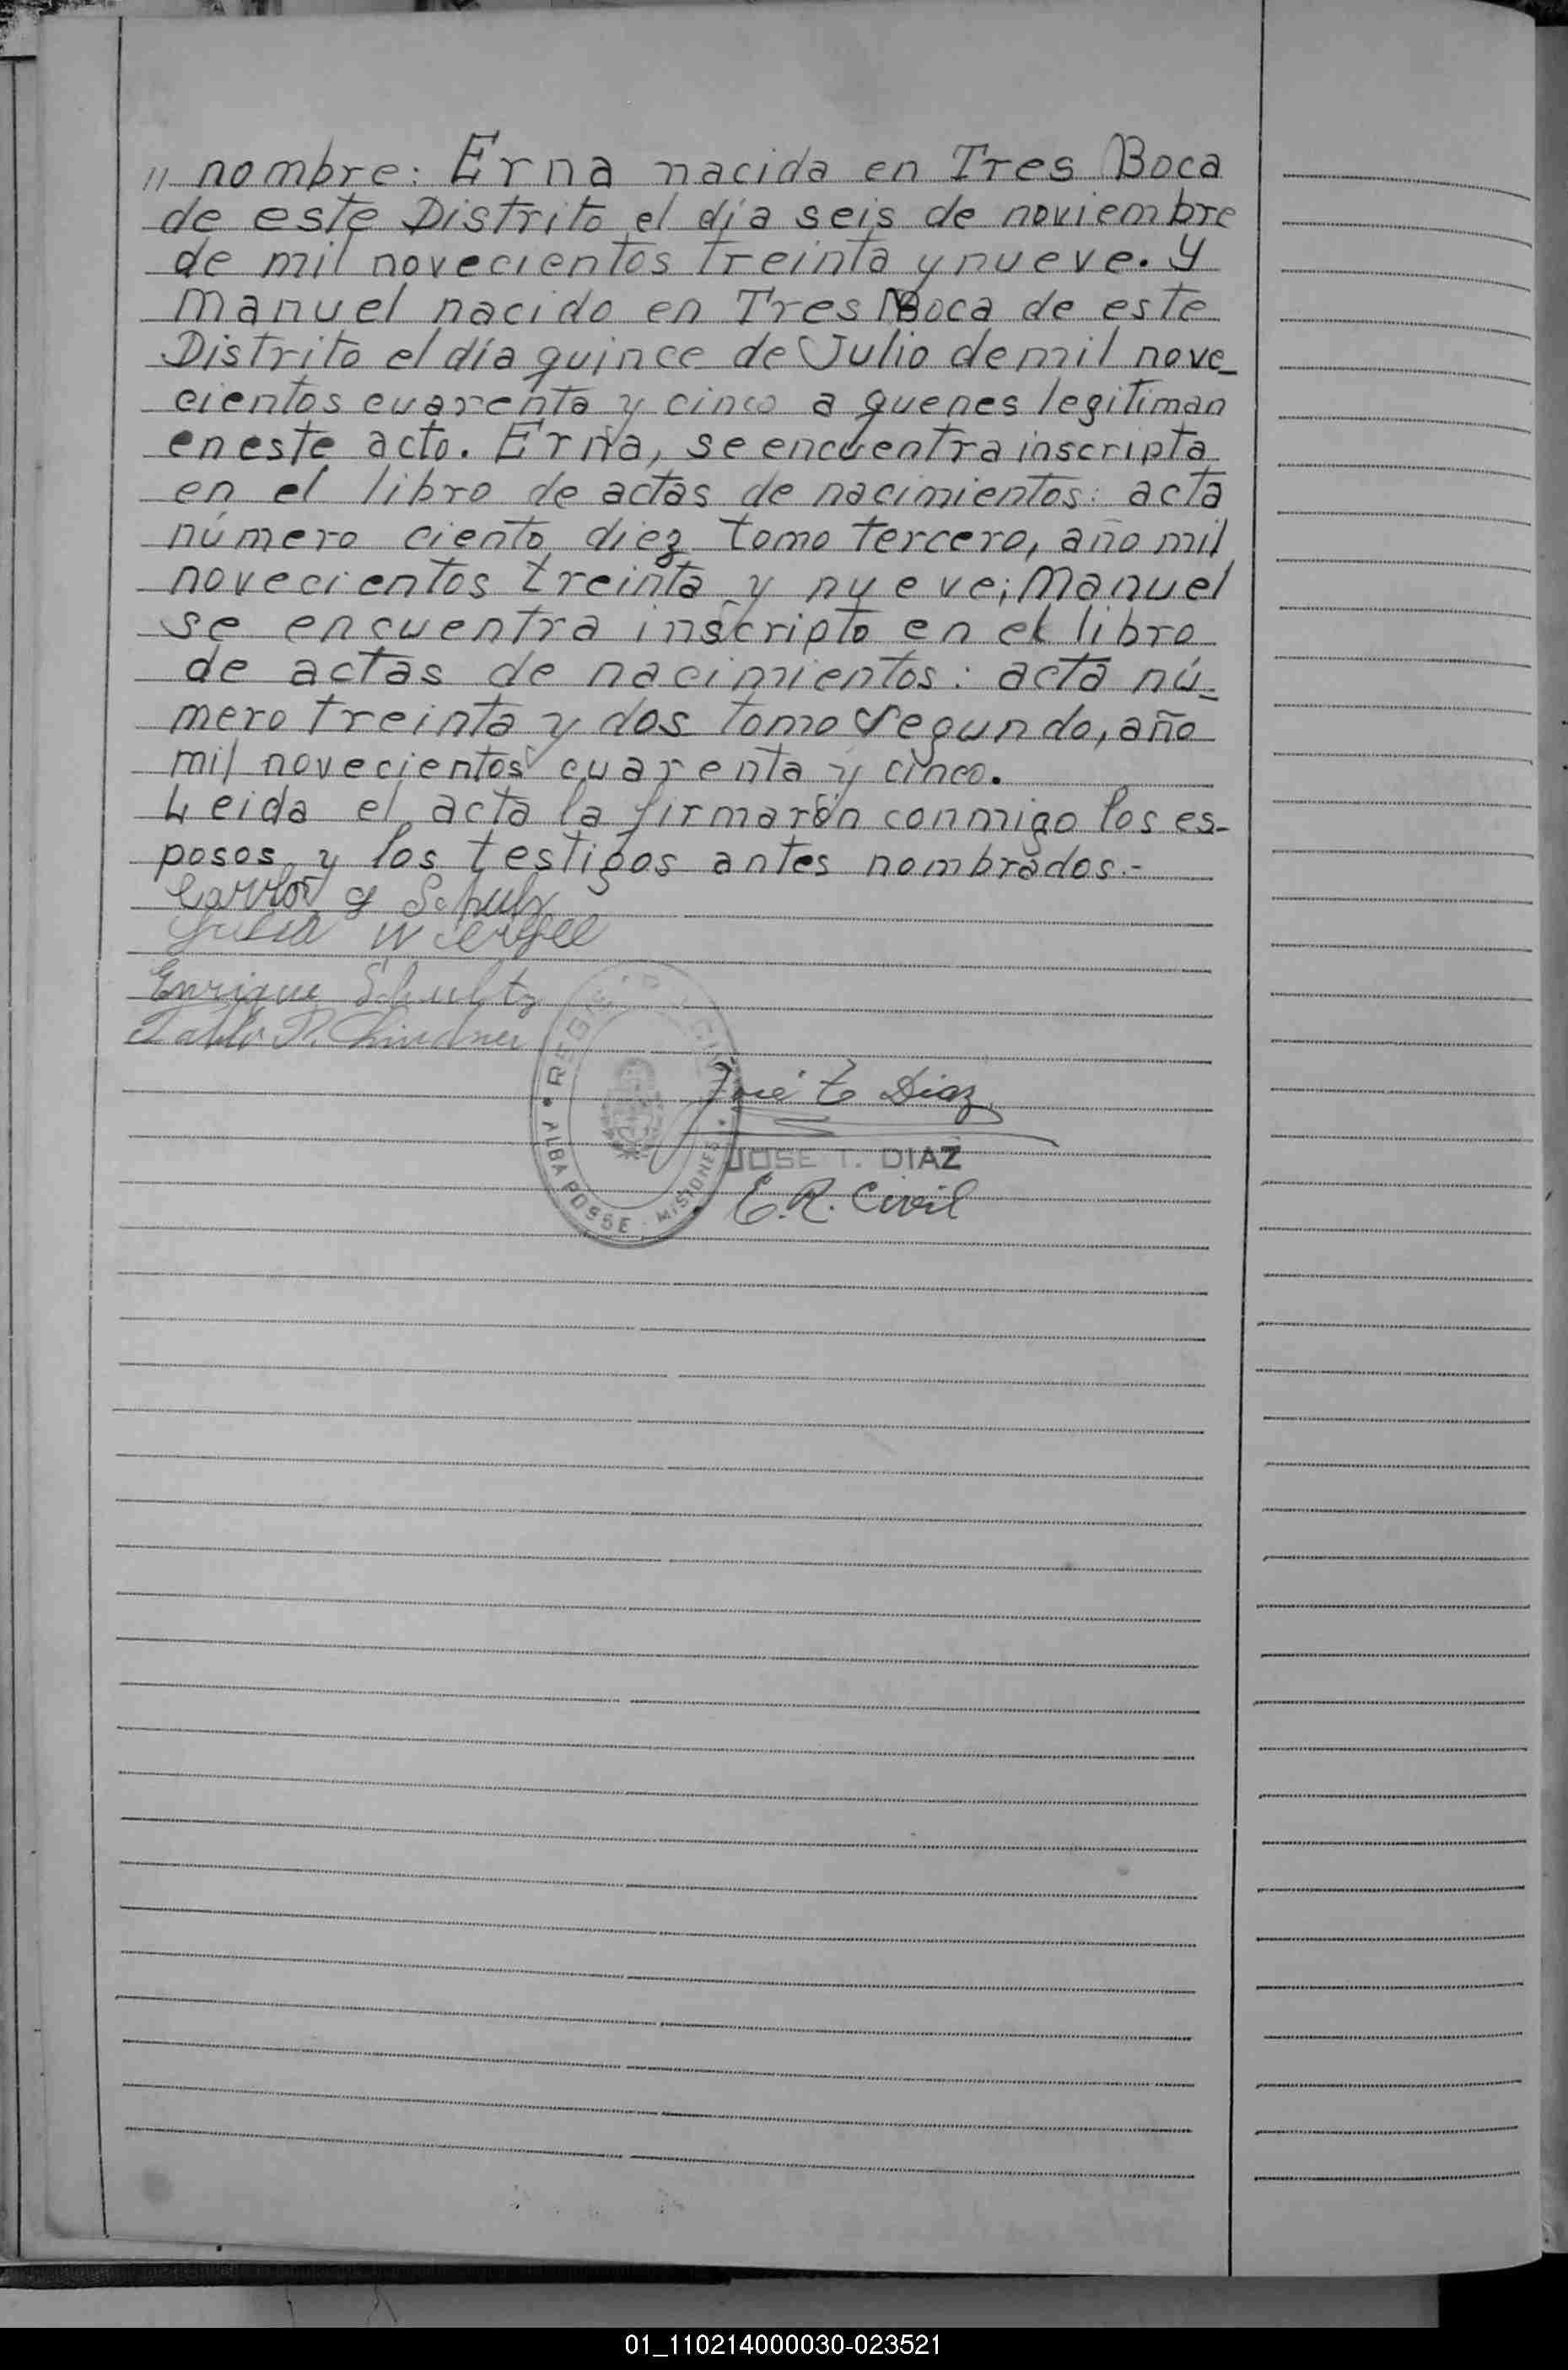 " nombre: Erna nacida en Tres Boca
de este Distrito el día seis de noviembre
de mil novecientos treinta y nueve. y
Manuel nacido en Tres Boca de este
Distrito el día quince de Julio de mil nove_
cientos cuarenta y cinco a quenes legitiman
en este acto. Erna, se encuentra inscripta
en el libro de actas de nacimientos: acta
número ciento diez tomo tercero, año mil
novecientos treinta y nueve; Manuel
se encuentra inscripto en el libro
de actas de nacimientos: acta nú=
mero treinta y dos tomo segundo, año
mil novecientos cuarenta y cinco.
Leida el acta la firmarón conmigo los es-
posos y los testigos antes nombrados.-
Carlos Schulz
Enrique Schultz
Pablo R. Lindner
REGISTRO CIVIL
ALBA POSSE - MISIONES
José T Diaz
JOSE T. DIAZ
E. R. Civil
01_110214000030-023521